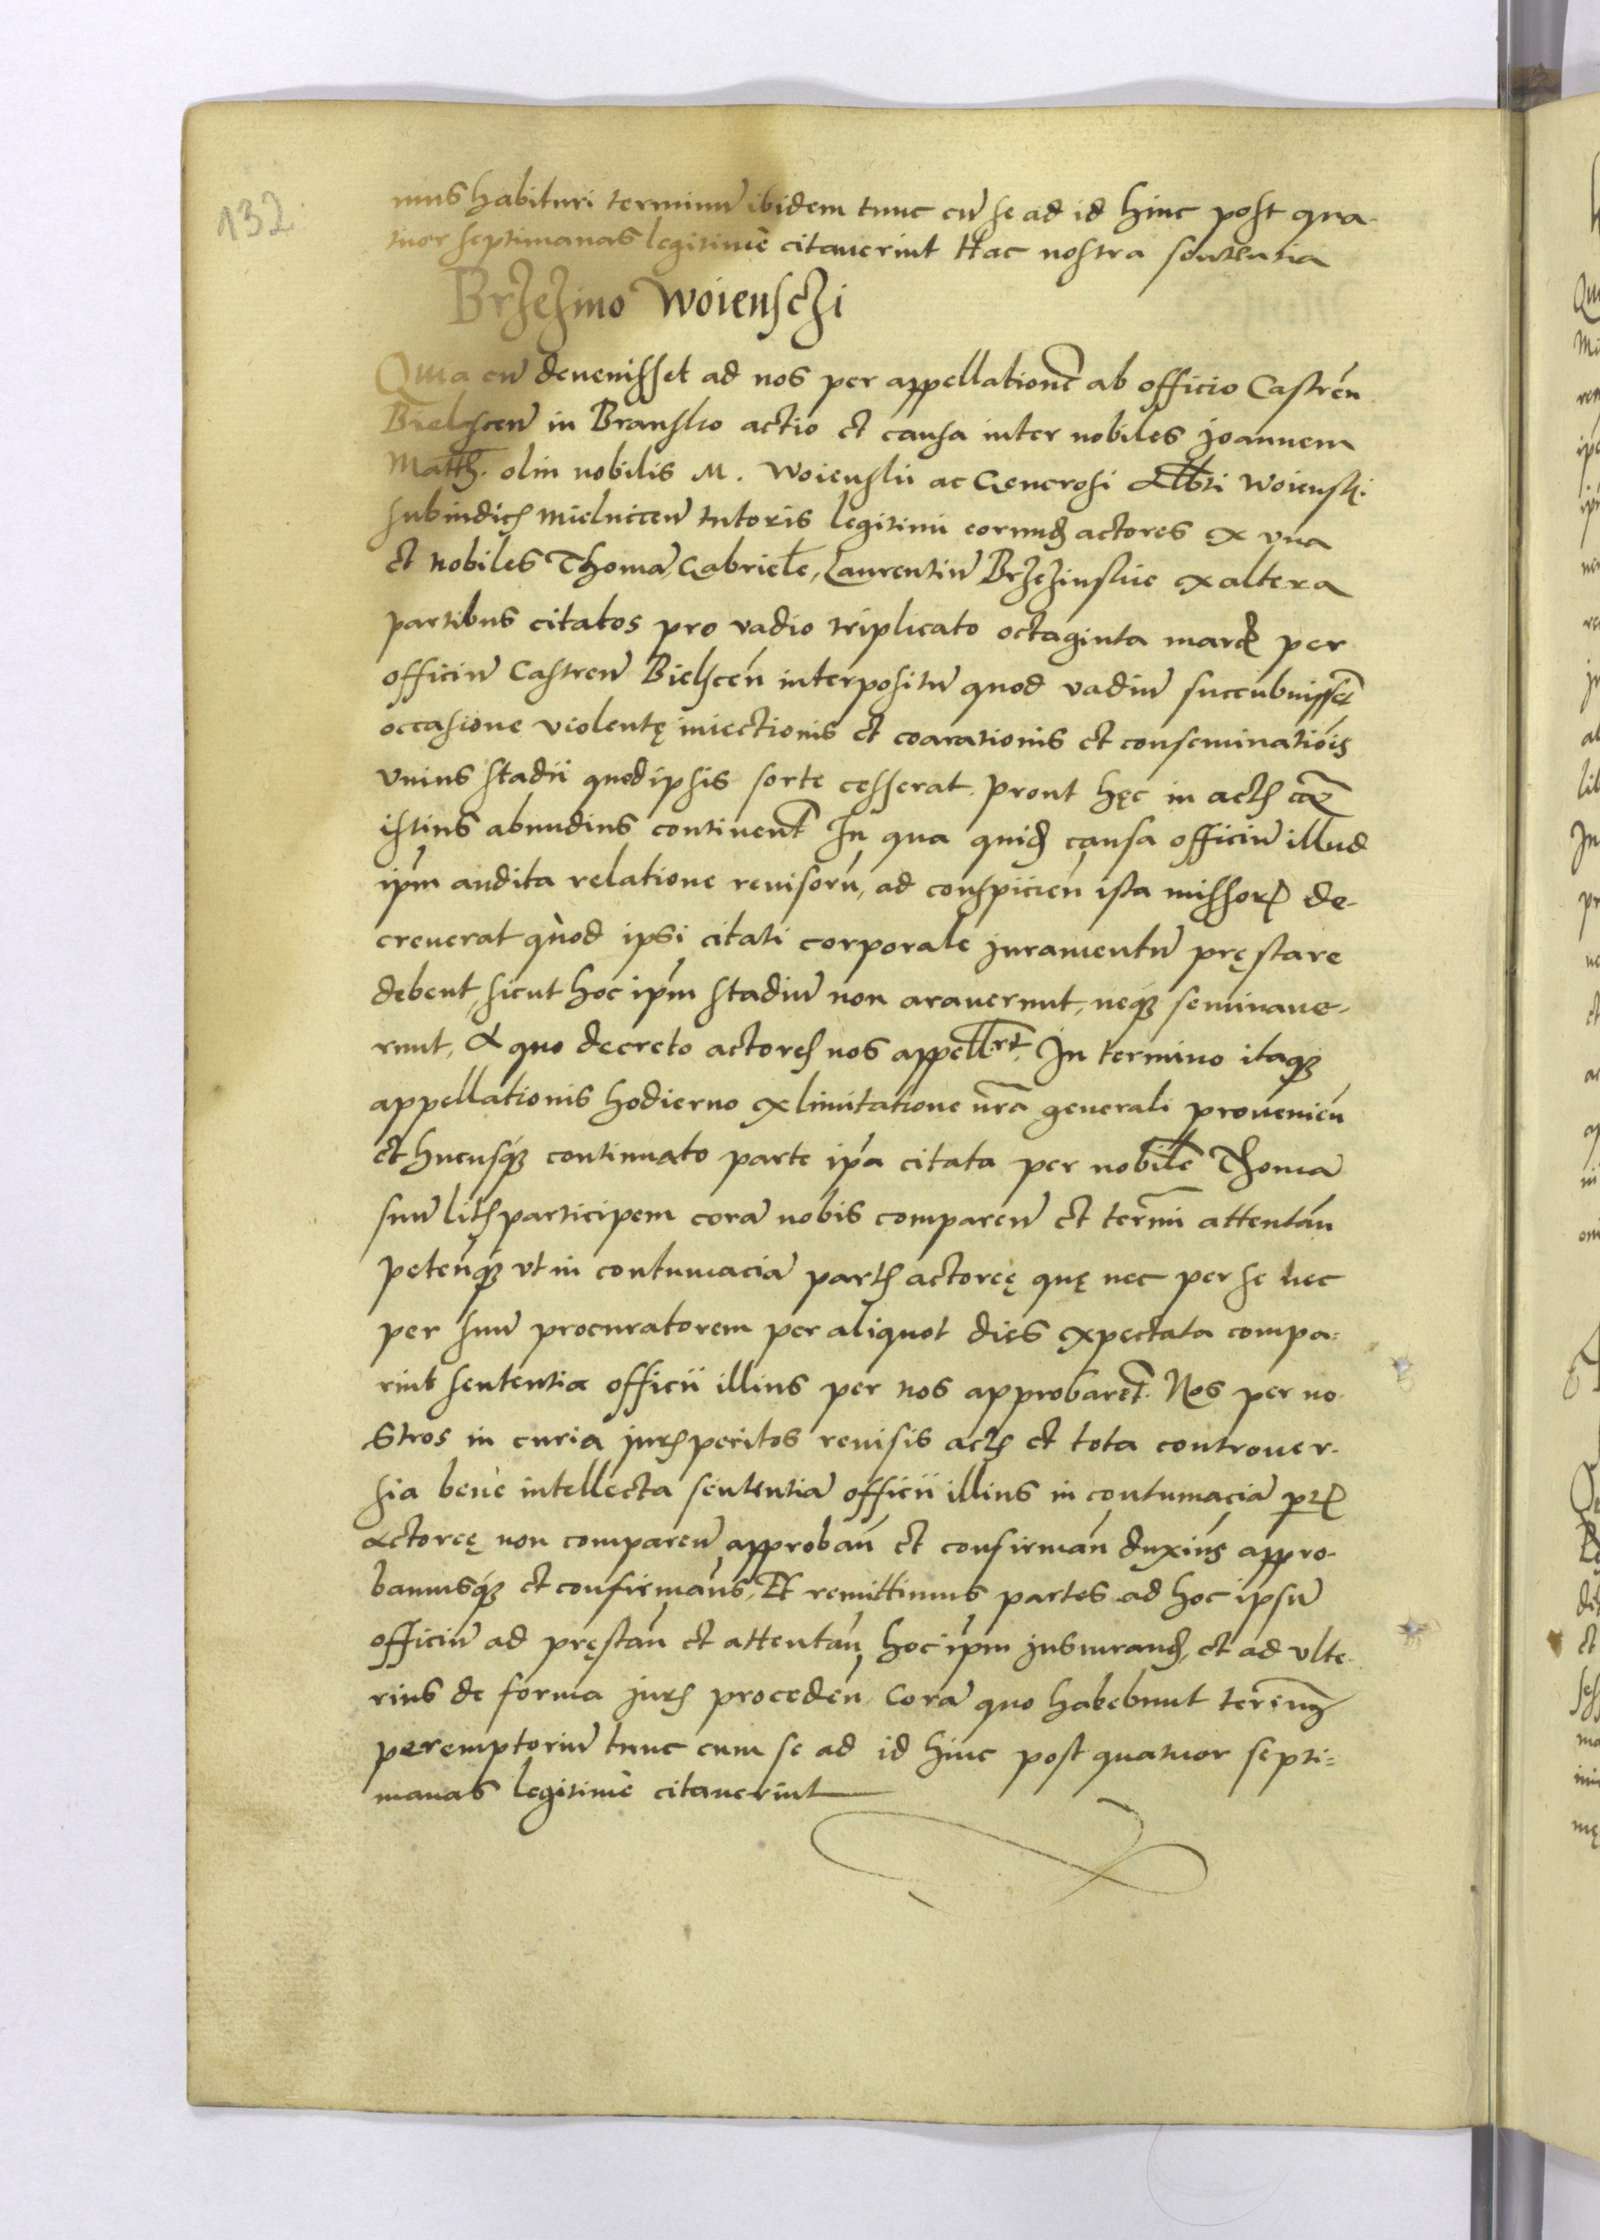 132
mus habituri terminũ ibidem tunc cũ se ad id hinc post qua-
tuor septimanas legitimè citauerint Hac nostra sententia
Brzezino Woiensczi
Quia cũ deuenisset ad nos per appellationẽ ab officio Castreñ
Bielsceñ in Bransko actio et causa inter nobiles Joannem
Matth. olim nobilis M. Woienskii ac Generosi Albti Woiensk.
subiudicis Mielniceñ tutoris legitimi eorund actores ex vna
et nobiles Thomã, Gabrielẽ, Laurentiũ Brzezinskie ex altera
partibus citatos pro vadio triplicato octaginta marc per
officiũ Castreñ Bielsceñ interpositũ quod vadiũ succubuisset
occasione violentę iniectionis et coarationis et conseminatiois
vnius stadii quod ipsis sorte cesserat. Prout hęc in actis
istius abundius continent In qua quid causa officiũ illud
ipm audita relatione reuisorũ, ad conspicieñ ista missor de-
creuerat quòd ipsi citati corporale juramentũ pręstare
debent, sicut hoc ipm stadiũ non arauerunt, neq seminaue-
runt, A quo decreto actores nos appellrt. In termino itaq
appellationis hodierno ex limitatione nrã generali prouenieñ
et hucusq continuato parte ipã citata per nobilẽ Thomã
suũ litis participem corã nobis compareñ et termi attentañ
peteñq vt in contumaciã partis actoreę quę nec per se nec
per suũ procuratorem per aliquot dies expectata compa-
ruit sententia officii illius per nos approbaret. Nos per no-
stros in curia juris peritos reuisis actis et tota controuer-
sia benè intellecta sententiã officii illius in contumaciã ptis
actoreę non compareñ approbañ et confirmañ duximus appro-
bamusq et confirmams, Et remittimus partes ad hoc ipsũ
officiũ ad pręstañ et attentañ hoc ipm jusiurand, et ad vlte-
rius de forma juris procedeñ, Corã quo habebunt termi
peremptoriũ tunc cum se ad id hinc post quatuor septi-
manas legitimè citauerint